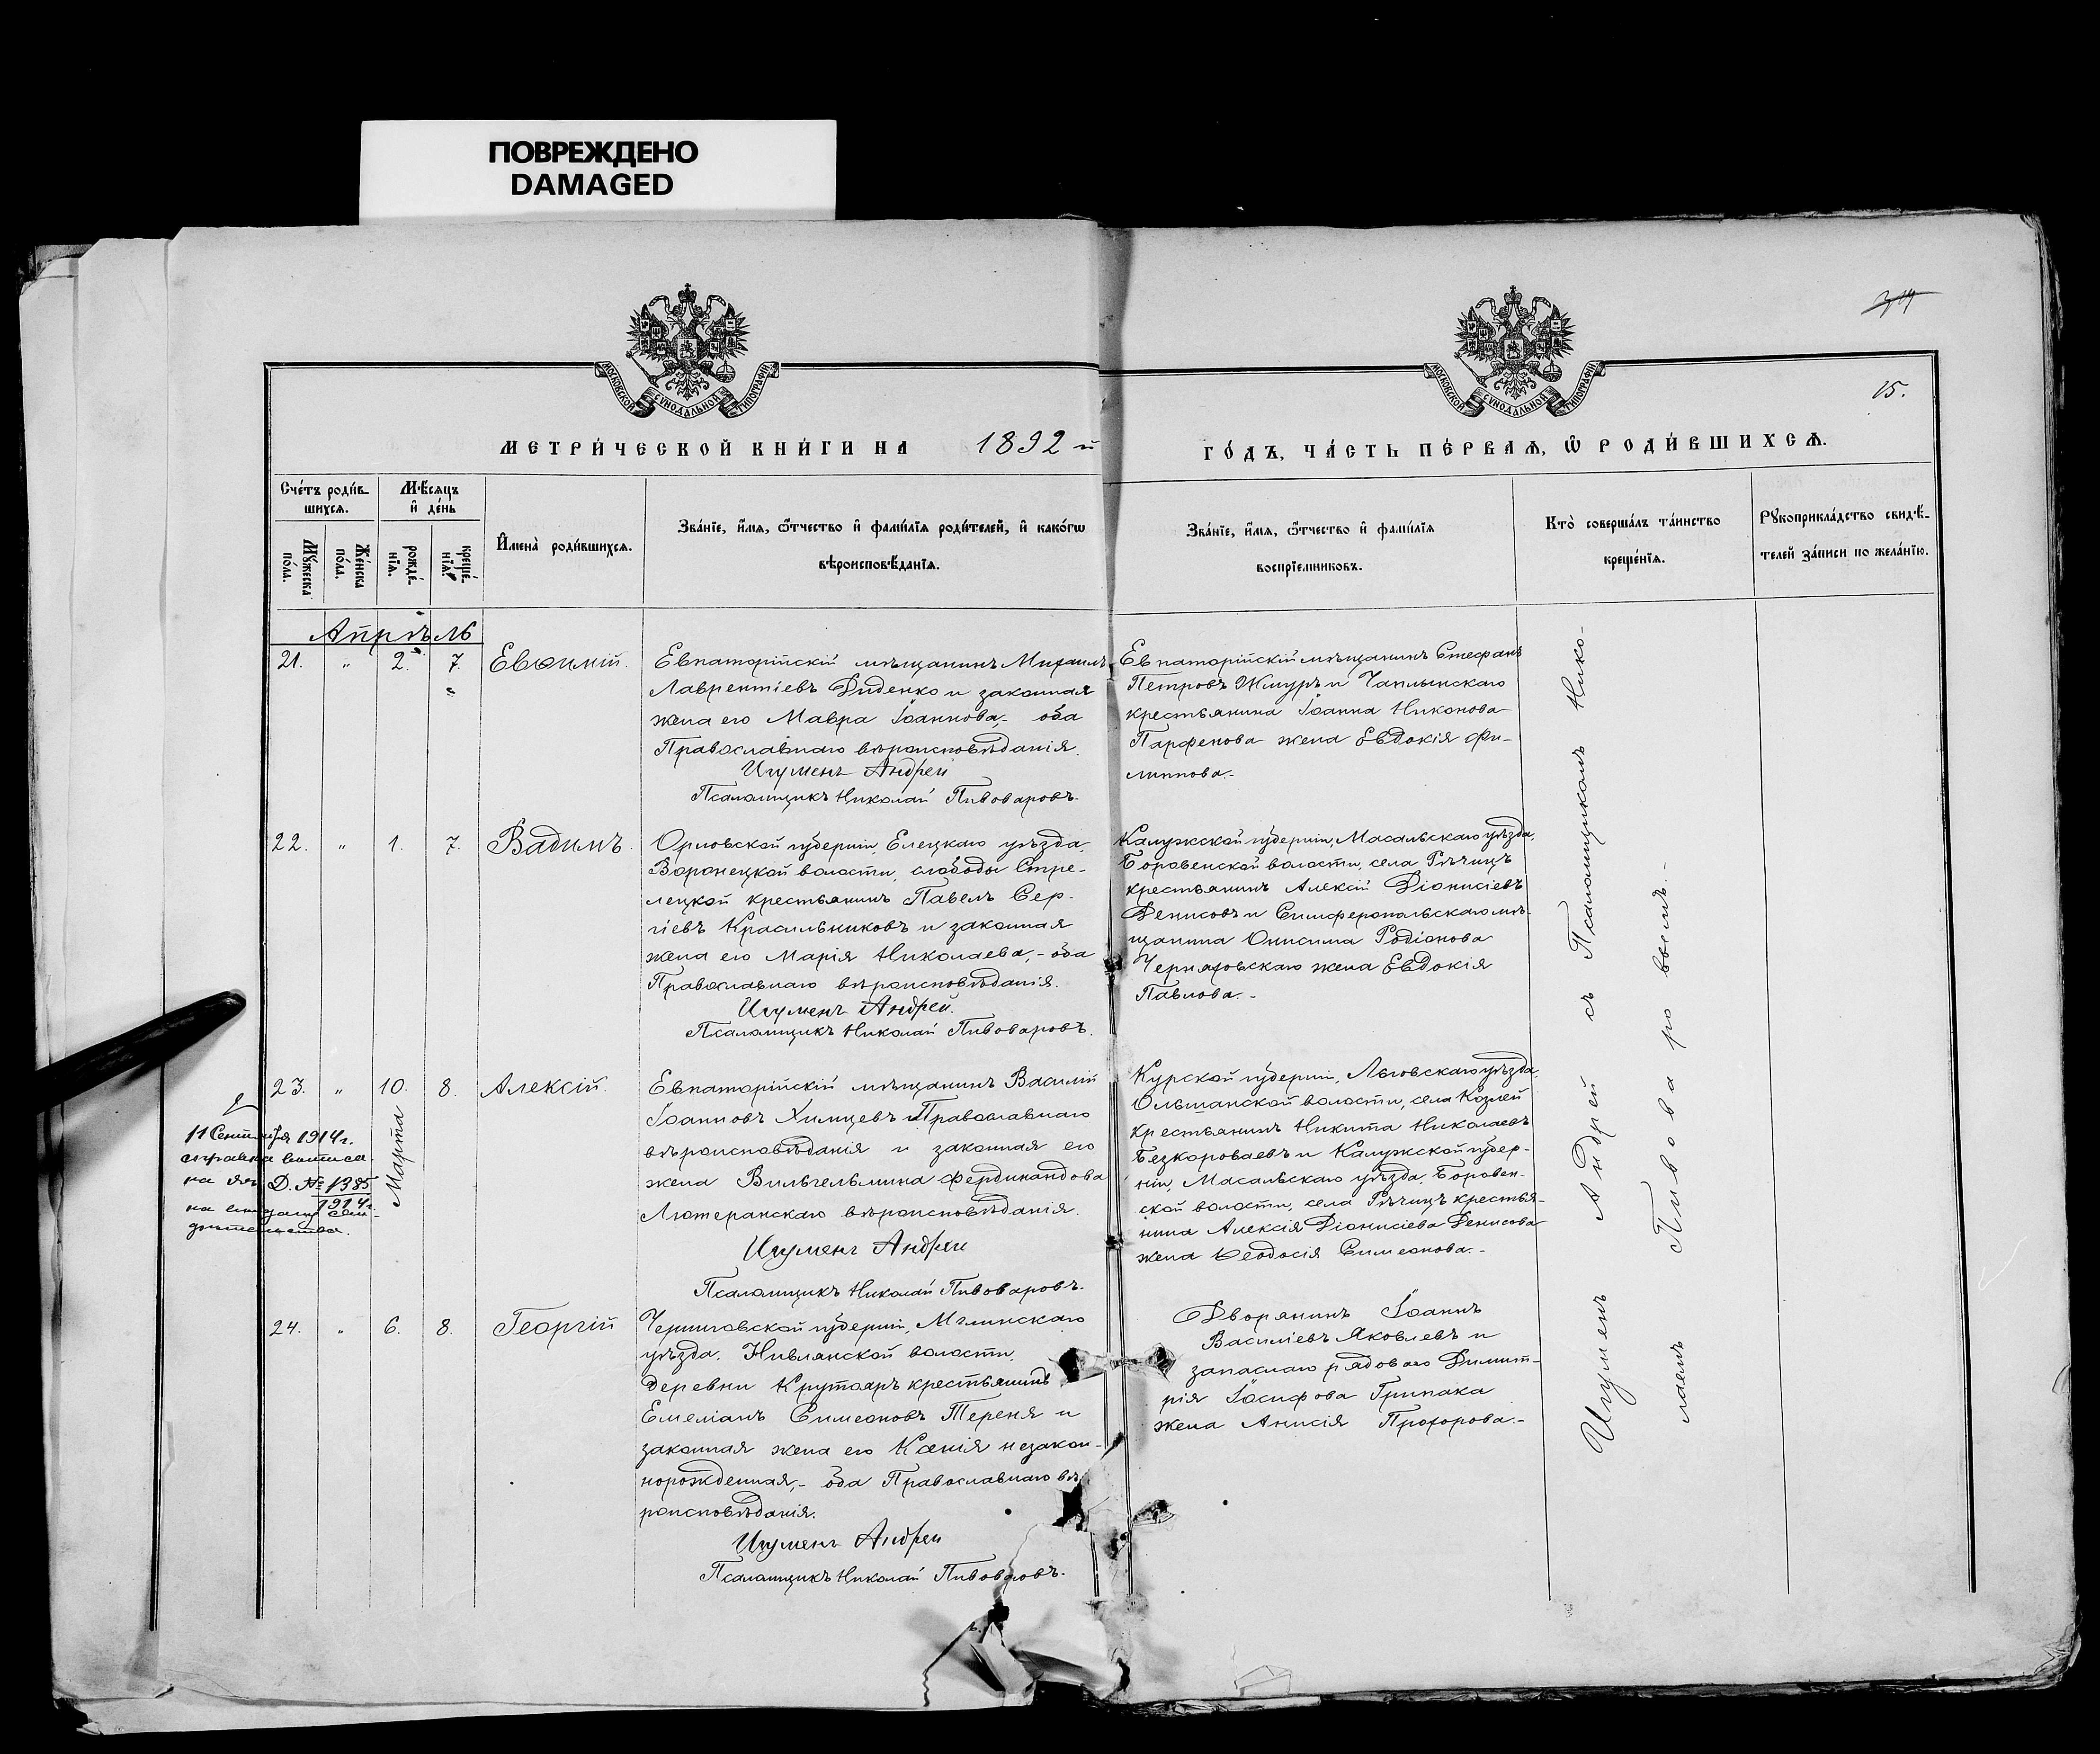 ПОВРЕЖДЕНО
DAMAGED
15.
МОСКОВСКОЙ СѴНОДАЛЬНОЙ ТИПОГРАФІИ
МОСКОВСКОЙ СѴНОДАЛЬНОЙ ТИПОГРАФІИ
МЕТРИ́ЧЕСКОЙ КНИ́ГИ НА 1892 й
ГО́ДЪ, ЧА́СТЬ ПЕ́РВАѦ, Ѿ РОДИ́ВШИХСѦ.
Сче́тъ роди́в-
шихсѧ.
Мꙋ́жеска по́ла.
Же́нска по́ла.
Мѣ́сѧцъ
и҆ де́нь
рожде́-нїѧ.
креще́-нїѧ.
И҆мена̀ роди́вшихсѧ.
Зва́нїе, и҆́мѧ, ѻ҆́тчество и҆ фами́лїѧ роди́телей, и҆ како́гѡ
вѣроисповѣ́данїѧ.
Зва́нїе, и҆́мѧ, ѻ҆́тчество и҆ фами́лїѧ
воспрїемниковъ.
Кто̀ соверша́лъ та́инство
креще́нїѧ.
Рꙋкоприкла́дство свидѣ́-
телей за́писи по жела́нїю.
Апрѣль
21. " 2. 7. Евѳимій.
"
Евпаторійскій мѣщанинъ Михаилъ
Лаврентіевъ Диденко и законная
жена его Мавра Іоаннова, оба
Православнаго вѣроисповѣданія.
Игуменъ Андрей
Псаломщикъ Николай Пивоваровъ.
Евпаторійскій мѣщанинъ Стефанъ
Петровъ Жмуръ и Чаплынскаго
крестьянина Іоанна Никонова
Парфенова жена Евдокія Фи-
липпова.-
22. " 1. 7. Вадимъ.
Орловской губерніи, Елецкаго уѣзда,
Воронецкой волости, слободы Стре-
лецкой крестьянинъ Павелъ Сер-
гіевъ Красильниковъ и законная
жена его Марія Николаева,- оба
Православнаго вѣроисповѣданія.
Игуменъ Андрей.
Псаломщикъ Николай Пивоваровъ.
Калужской губерніи, Масальскаго уѣзда,
Боровенской волости, села Рѣчицъ
крестьянинъ Алексій Діонисіевъ
Денисовъ и Симферопольскаго мѣ-
щанина Онисима Родіонова
Черняховскаго жена Евдокія
Павлова.-
23. " 10. 8. Алексій.
Марта
11 Сентября 1914 г.
справка выписа-
на
Д. № 1385
1914 г.
на выдачу сви-
дѣтельства.
Евпаторійскій мѣщанинъ Василій
Іоанновъ Химцевъ Православнаго
вѣроисповѣданія и законная его
жена Вильгельмина Фердинандова
Лютеранскаго вѣроисповѣданія.
Игуменъ Андрей
Псаломщикъ Николай Пивоваровъ.
Курской губерніи, Льговскаго уѣзда,
Ольшанской волости, села Козлей
крестьянинъ Никита Николаевъ
Безкороваевъ и Калужской губер-
ніи, Масальскаго уѣзда, Боровен-
ской волости, села Рѣчицъ крестья-
нина Алексія Діонисіева Денисова
жена Ѳеодосія Симеонова.-
24. " 6. 8. Георгій
Черниговской губерніи, Мглинскаго
уѣзда, Нивлянской волости,
деревни Крутояръ крестьянинъ
Емеліанъ Симеоновъ Тереня и
законная жена его Ксенія незакон-
норожденная,- оба Православнаго вѣ-
роисповѣданія.
Игуменъ Андрей
Псаломщикъ Николай Пивоваровъ.
Дворянинъ Іоаннъ
Василіевъ Яковлевъ и
запаснаго рядоваго Димит-
рія Іосифова Грипака
жена Анисія Прохорова.-
Игуменъ Андрей съ Псаломщикомъ Нико-
лаемъ Пивоваровымъ.-